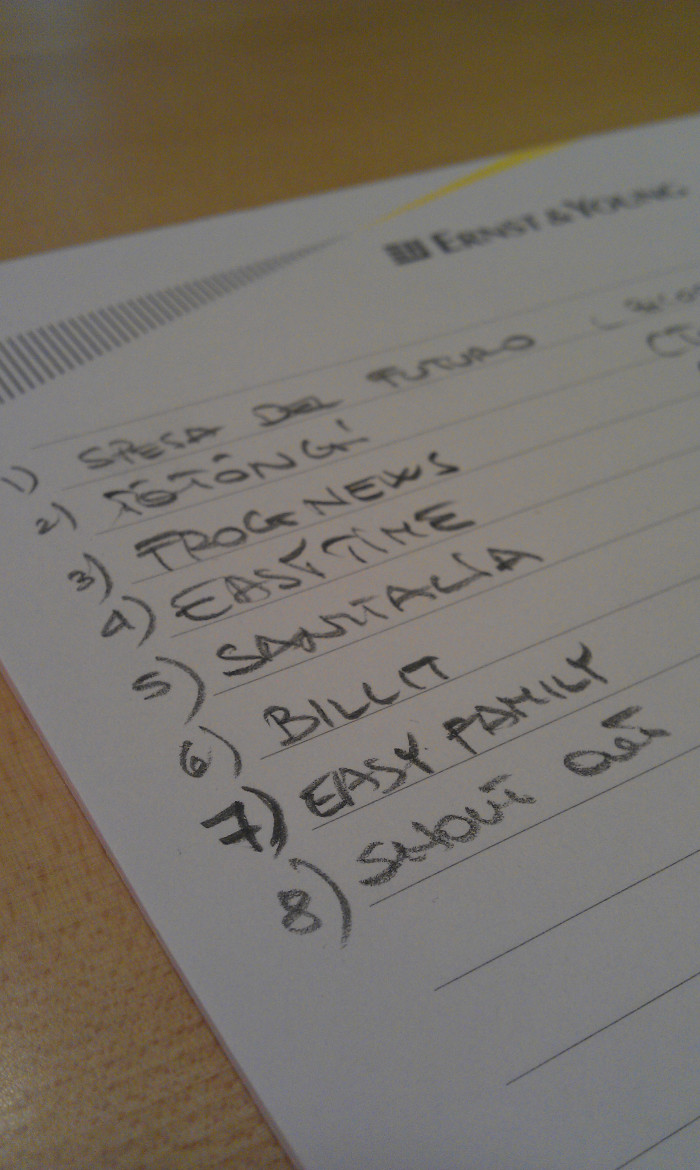 ERNST & YOUNG
1) SPESA DEL FUTURO
2) TOTONGI
3) FROGNEWS
4) EASYTIME
5) SANITALIA
6) BILLIT
7) EASY FAMILY
8)